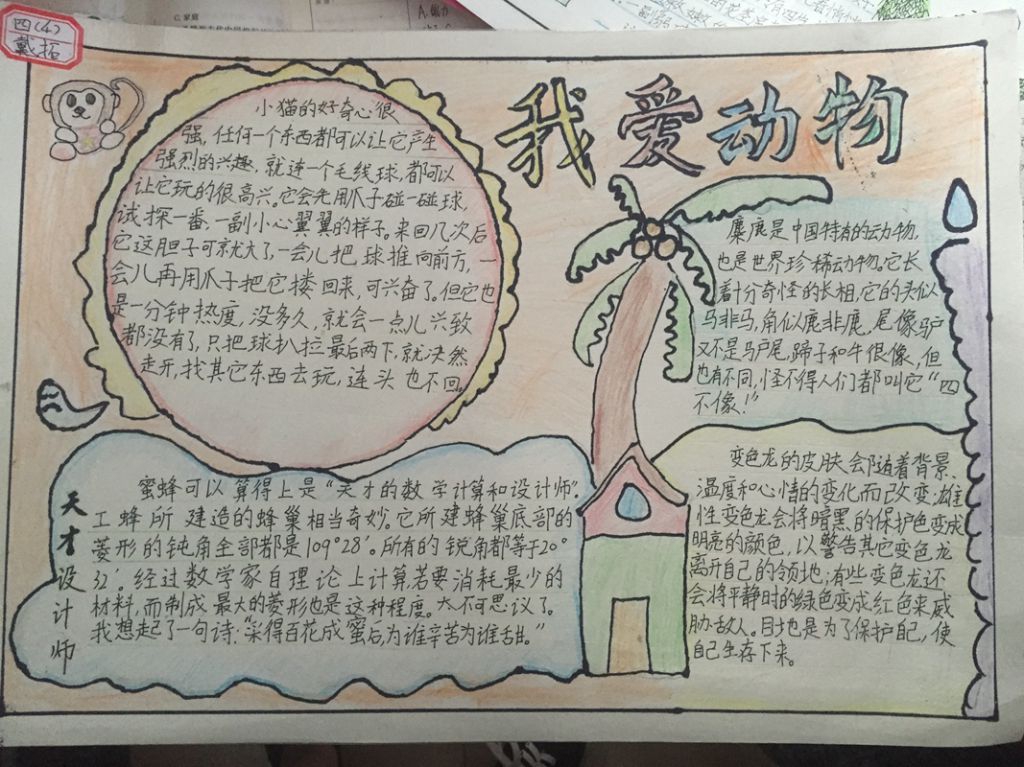 四(4)
戴拓
我爱动物
小猫的好奇心很
强,任何一个东西都可以让它产生
强烈的兴趣,就连一个毛线球,都可以
让它玩的很高兴。它会先用爪子碰一碰球,
试探一番,一副小心翼翼的样子。来回几次后
它这胆子可就大了,一会儿把球推向前方,一
会儿再用爪子把它搂回来,可兴奋了。但它也
是一分钟热度,没多久,就会一点儿兴致
都没有了,只把球扒拉最后两下,就决然
走开,找其它东西去玩,连头也不回。
麋鹿是中国特有的动物,
也是世界珍稀动物。它长
着十分奇怪的长相,它的头似
马非马,角似鹿非鹿,尾像驴
又不是驴尾,蹄子和牛很像,但
也有不同,怪不得人们都叫它“四
不像!”
天才设计师
蜜蜂可以算得上是“天才的数学计算和设计师”.
工蜂所建造的蜂巢相当奇妙。它所建蜂巢底部的
菱形的钝角全部都是109°28′。所有的锐角都等于20°
32′。经过数学家自理论上计算若要消耗最少的
材料,而制成最大的菱形也是这种程度。太不可思议了。
我想起了一句诗:“采得百花成蜜后,为谁辛苦为谁甜。”
变色龙的皮肤会随着背景、
温度和心情的变化而改变;雄
性变色龙会将暗黑的保护色变成
明亮的颜色,以警告其它变色龙
离开自己的领地;有些变色龙还
会将平静时的绿色变成红色来威
胁敌人。目地是为了保护自己,使
自己生存下来。